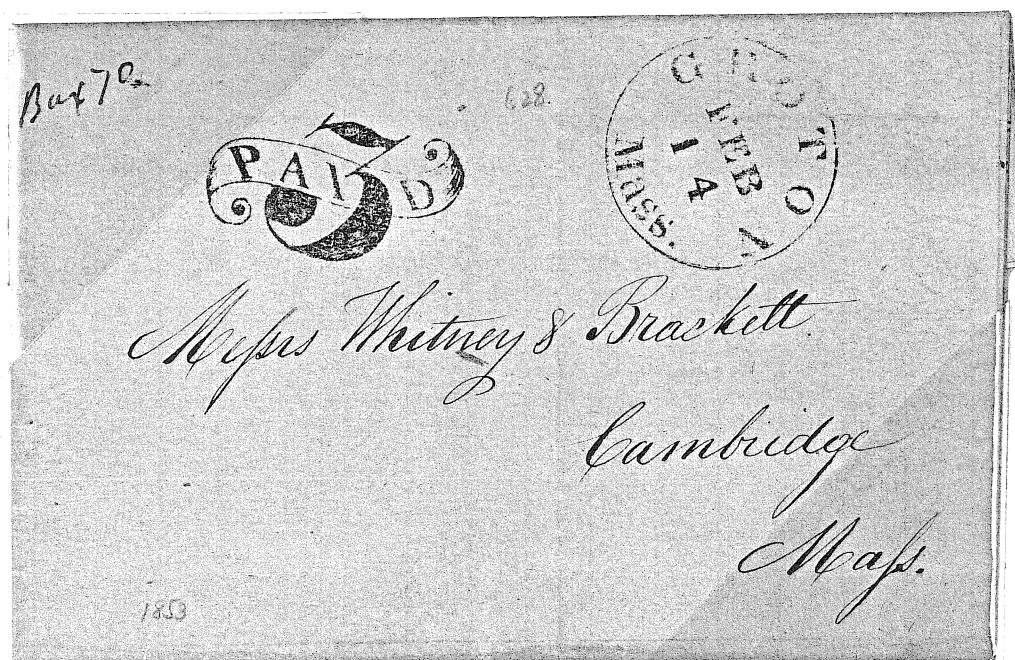 Box 70
628.
PAID
5
GROTON
FEB
14
Mass.
Messrs Whitney & Brackett
Cambridge
Mass.
1853